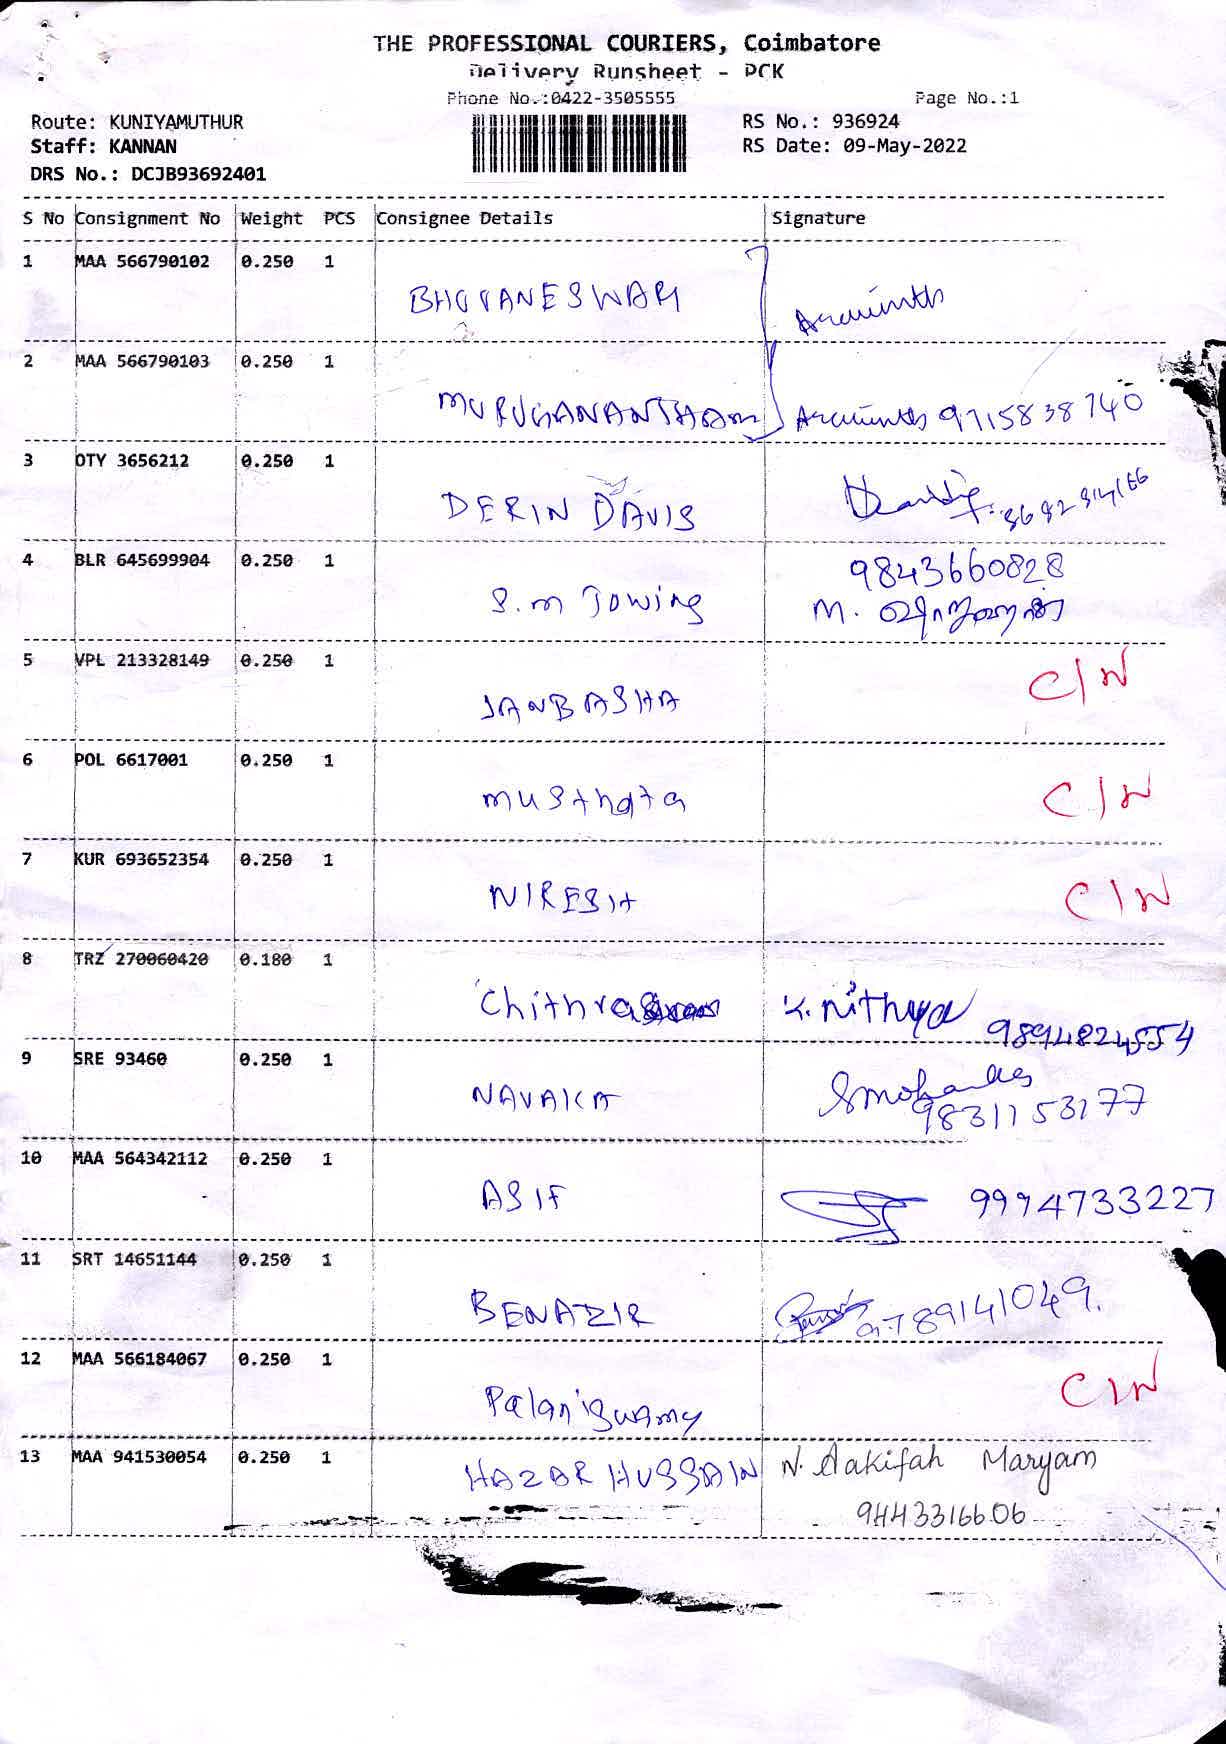 THE PROFESSIONAL COURIERS, Coimbatore
Delivery Runsheet - PCK
Phone No.:0422-3505555 Page No.:1
Route: KUNIYAMUTHUR RS No.: 936924
Staff: KANNAN RS Date: 09-May-2022
DRS No.: DCJB93692401
S No Consignment No Weight PCS Consignee Details Signature
1 MAA 566790102 0.250 1
BHUVANESWARI Aravinth
2 MAA 566790103 0.250 1
MURUGANANTHAM Aravinth 9715838740
3 OTY 3656212 0.250 1
DERIN DAVIS
4 BLR 645699904 0.250 1 9843660828
S.M Towing M.
5 VPL 213328149 0.250 1 C/N
JANBASHA
6 POL 6617001 0.250 1
musthafa C/N
7 KUR 693652354 0.250 1
NIRESH C/N
8 TRZ 270060420 0.180 1
Chithra K. Nithya
9894824554
9 SRE 93460 0.250 1
NAVAKA 9831153177
10 MAA 564342112 0.250 1
ASIF 9994733227
11 SRT 14651144 0.250 1
BENAZIR 9789141049.
12 MAA 566184067 0.250 1 C/N
Palaniswamy
13 MAA 941530054 0.250 1 HAZAR HUSSAIN N. Aakifah Maryam
9443316606